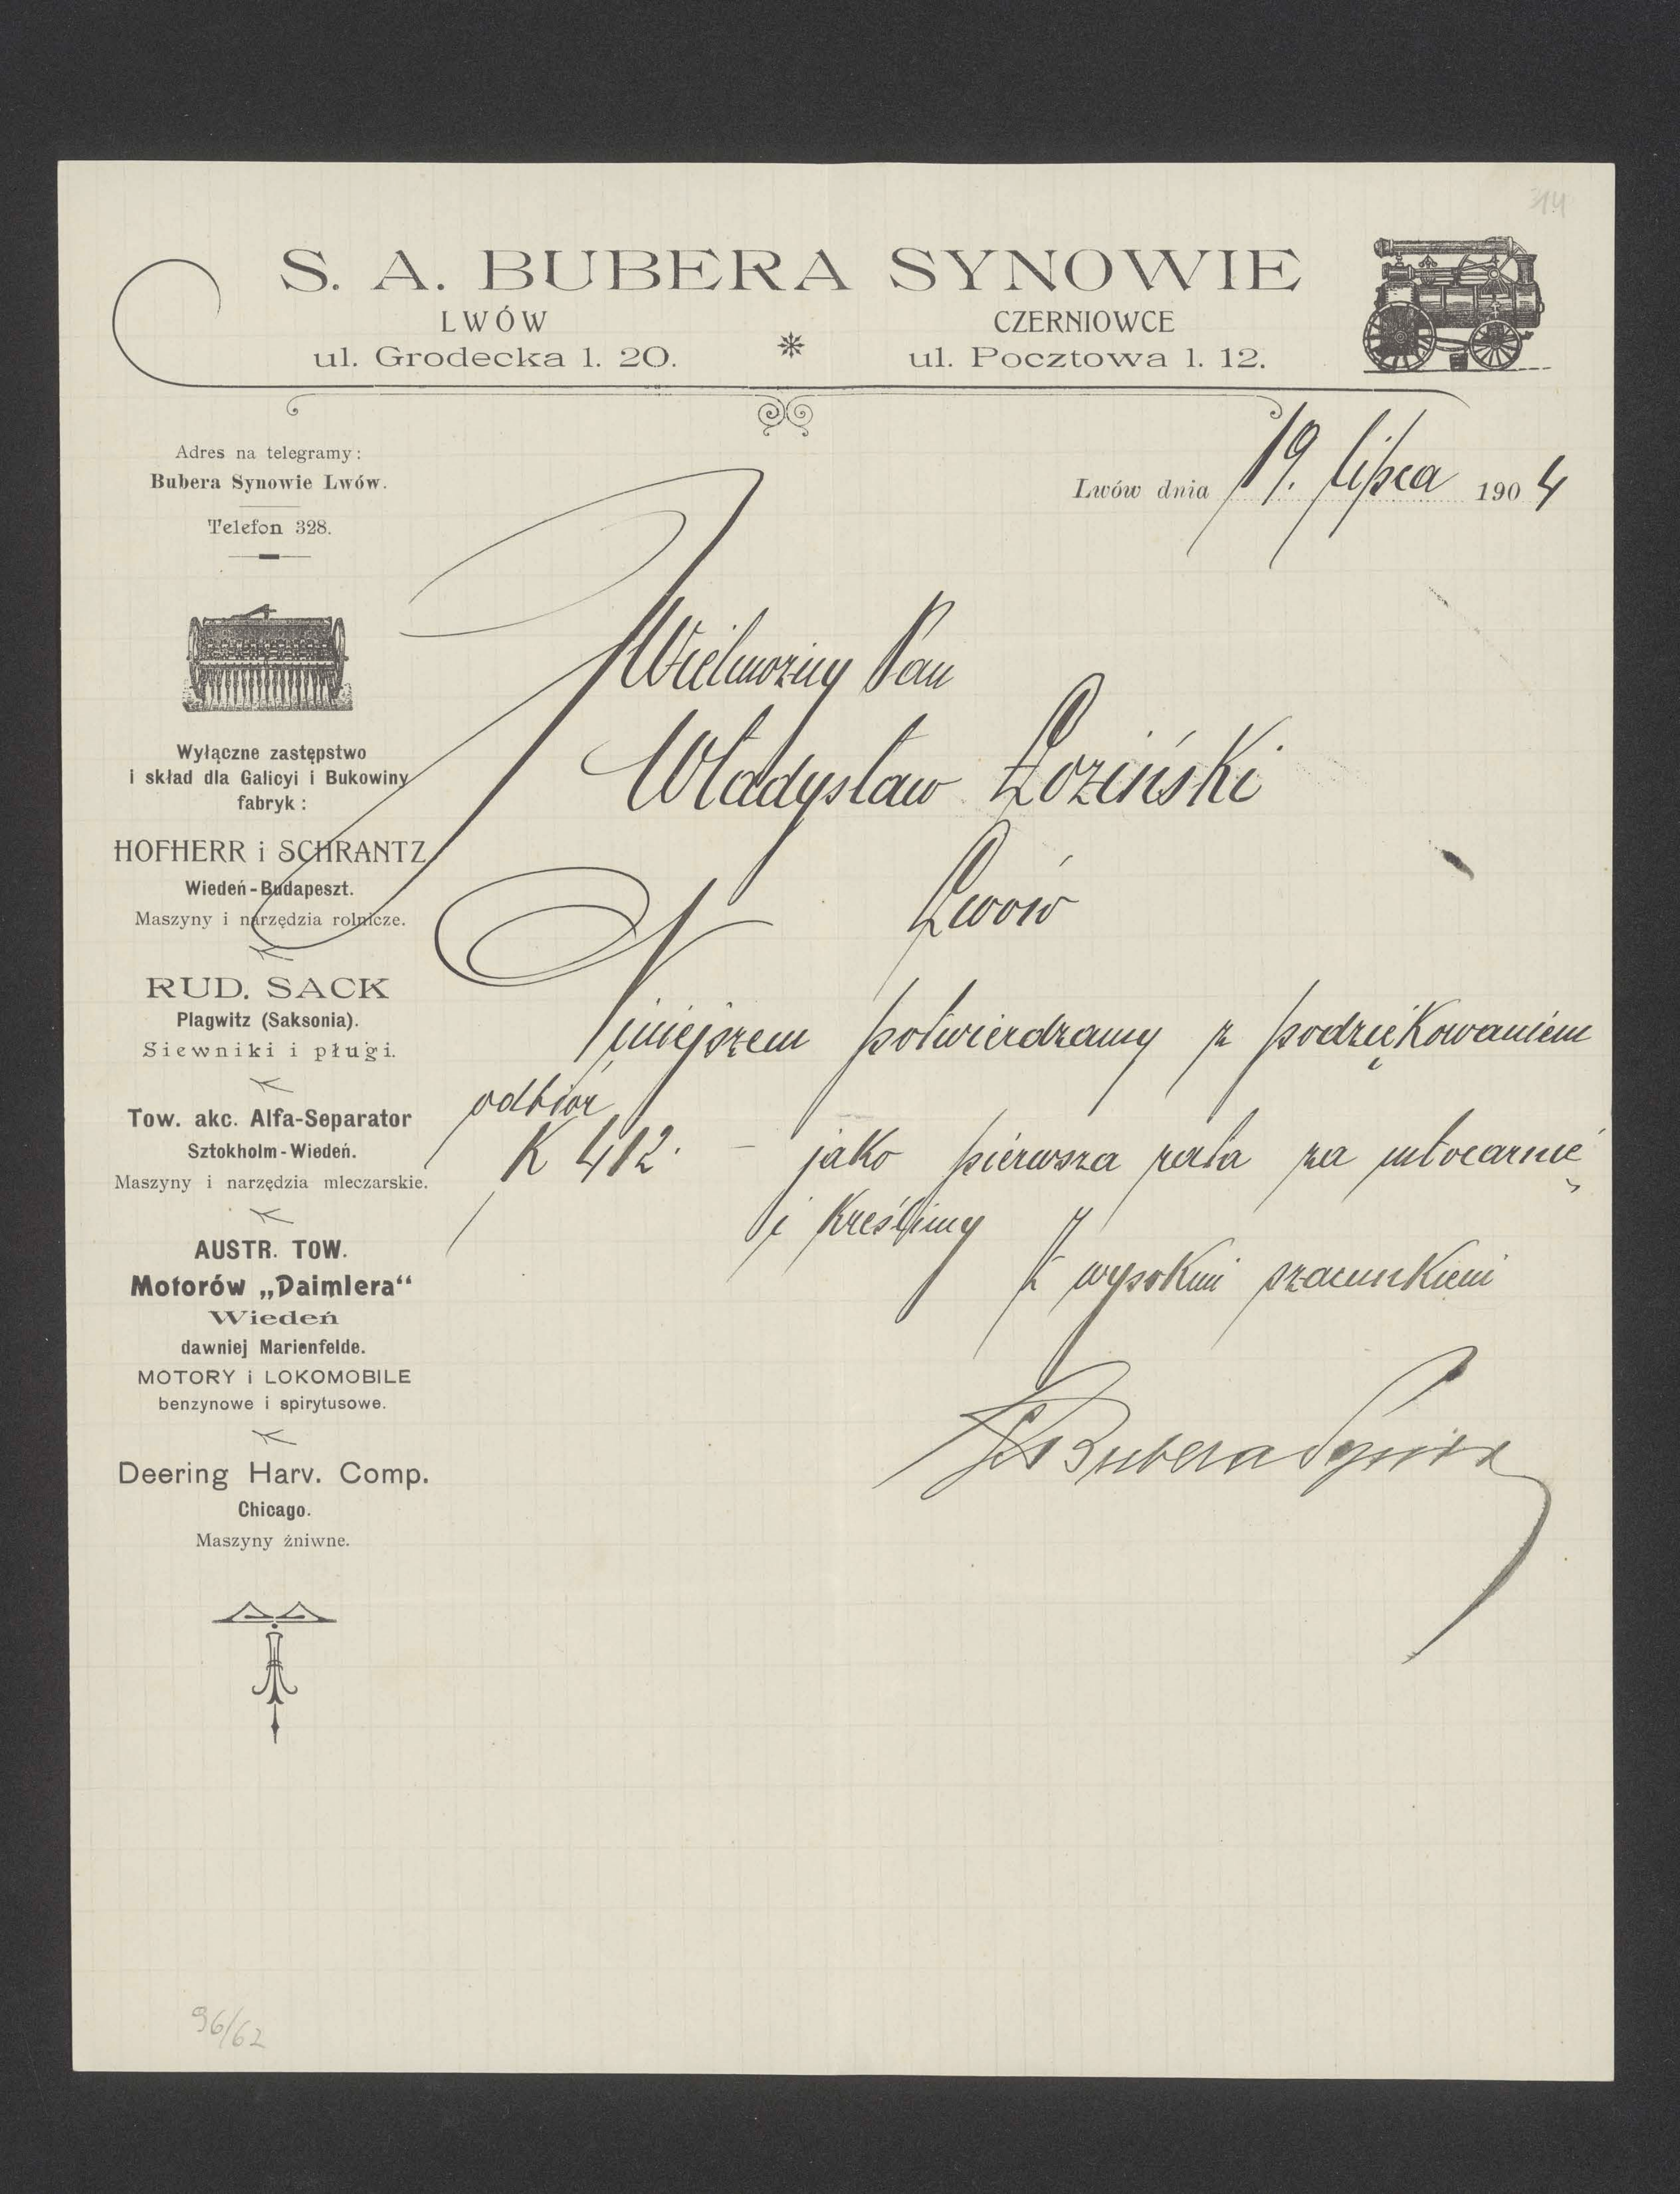 314
S. A. BUBERA SYNOWIE
LWÓW CZERNIOWCE
ul. Grodecka l. 20. ul. Pocztowa l. 12.
Adres na telegramy:
Bubera Synowie Lwów.
Telefon 328.
Lwów dnia 19. lipca 1904
Wyłączne zastępstwo
i skład dla Galicyi i Bukowiny
fabryk:
HOFHERR i SCHRANTZ
Wiedeń-Budapeszt.
Maszyny i narzędzia rolnicze.
RUD. SACK
Plagwitz (Saksonia).
Siewniki i pługi.
Tow. akc. Alfa-Separator
Sztokholm-Wiedeń.
Maszyny i narzędzia mleczarskie.
AUSTR. TOW.
Motorów „Daimlera“
Wiedeń
dawniej Marienfelde.
MOTORY i LOKOMOBILE
benzynowe i spirytusowe.
Deering Harv. Comp.
Chicago.
Maszyny żniwne.
Wielmożny Pan
Władysław Łoziński
Lwów
Niniejszem potwierdzamy z podziękowaniem
odbiór
K 412.– jako pierwsza rata za młocarnię
i kreślimy
z wysokim szacunkiem
SABubera Synowie
96/62